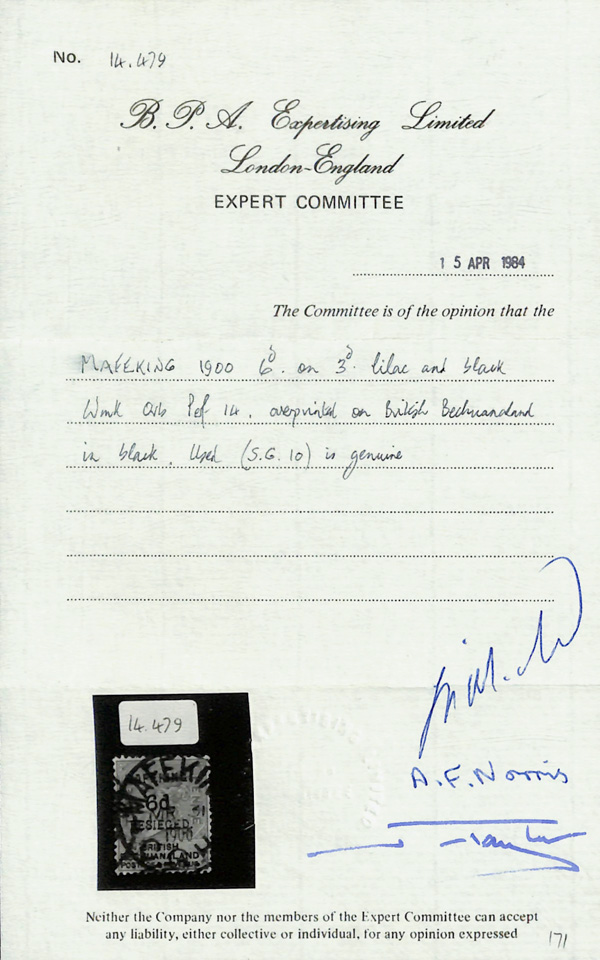 No. 14.479
B. P. A. Expertising Limited
London-England
EXPERT COMMITTEE
15 APR 1984
The Committee is of the opinion that the
MAFEKING 1900 6d. on 3d. lilac and black
Wmk Orb Perf 14. overprinted on British Bechuanaland
in black. Used (S.G. 10) is genuine
A.F. Norris
14.479
MAFEKI
6d.
BESIEGED
BRITISH
Neither the Company nor the members of the Expert Committee can accept
any liability, either collective or individual, for any opinion expressed
171